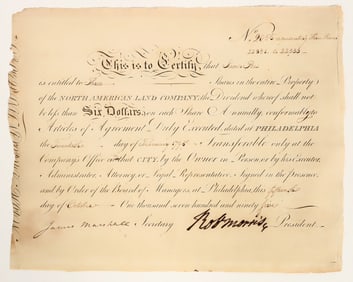 No
This is to Certify, that
is entitled to Shares in the entire Property
of the NORTH AMERICAN LAND COMPANY; the Dividend whereof shall not
be less than Six Dollars on each Share Annually, conformably to
Articles of Agreement Duly Executed, dated at PHILADELPHIA
the day of 1795 Transferable only at the
Company's Office in that CITY, by the Owner in Person, or by his Executor,
Administrator, Attorney or Legal Representative. Signed in the presence,
and by Order of the Board of Managers, at Philadelphia, this
day of One thousand seven hundred and ninety
James Marshall Secretary Rob Morris President